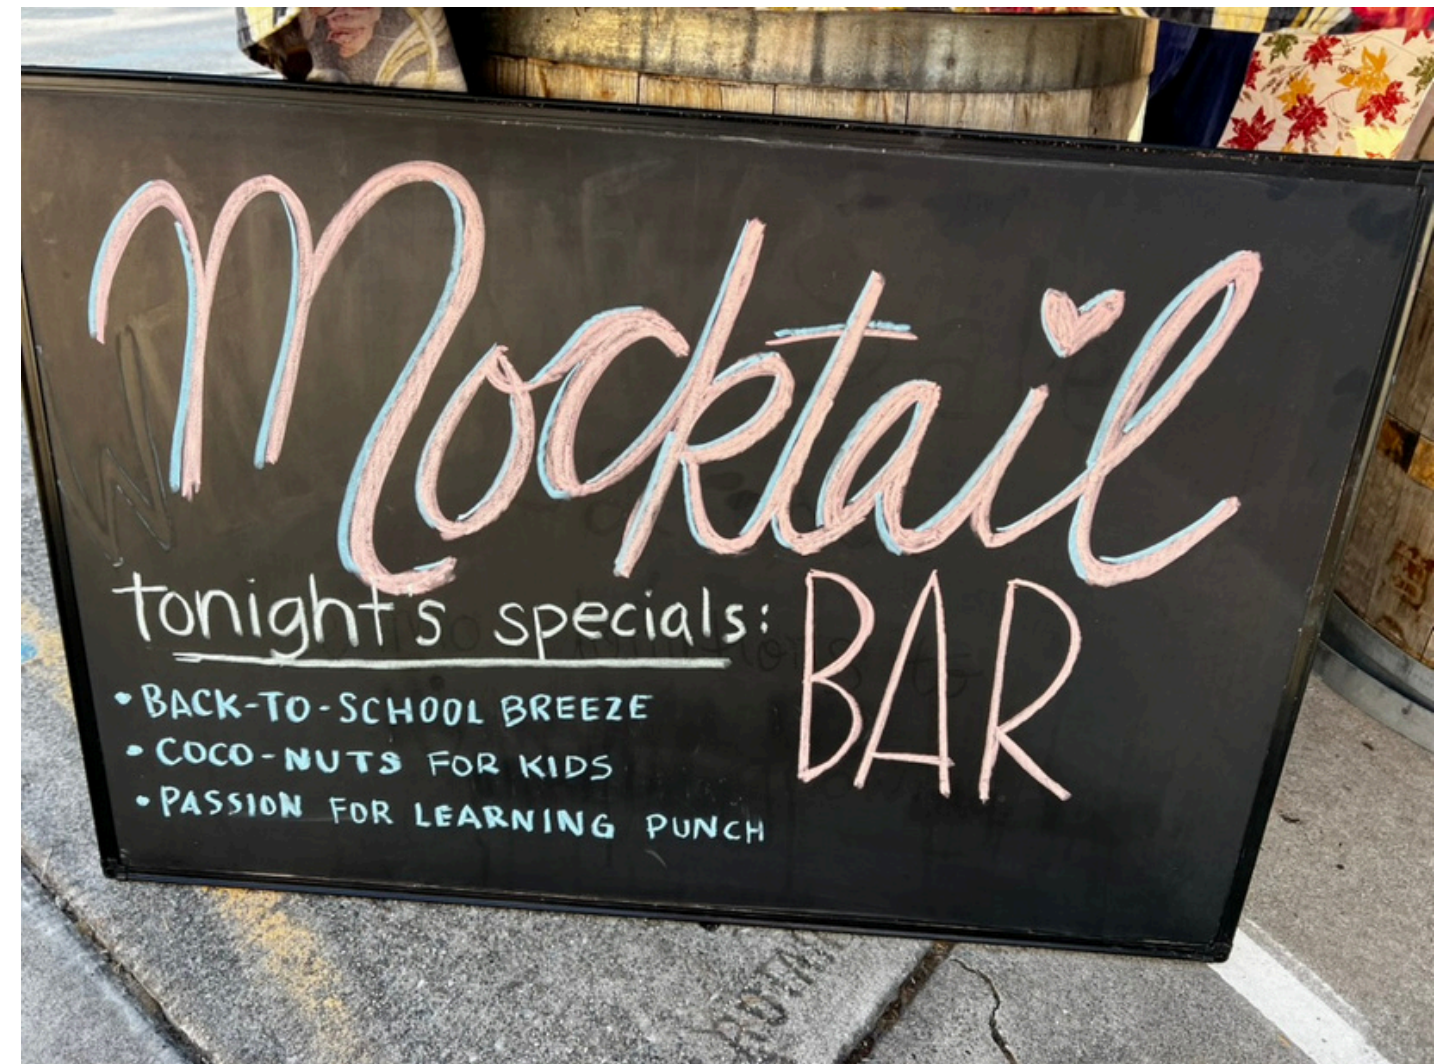 Mocktail
BAR
tonight's specials:
• BACK-TO-SCHOOL BREEZE
• COCO-NUTS FOR KIDS
• PASSION FOR LEARNING PUNCH